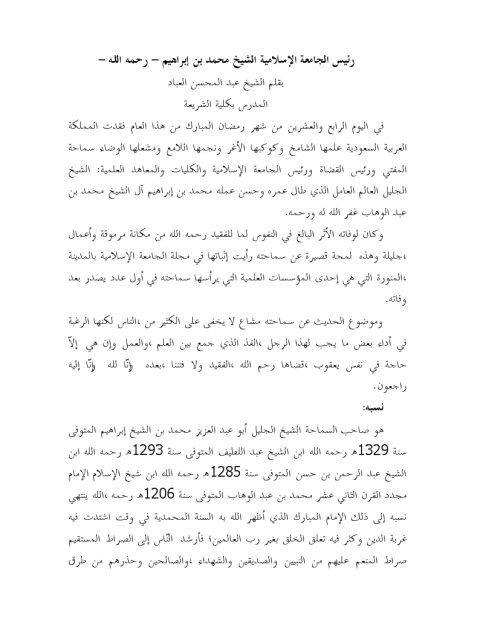 رئيس الجامعة الإسلامية الشيخ محمد بن إبراهيم – رحمه الله –
بقلم الشيخ عبد المحسن العباد
المدرس بكلية الشريعة
في اليوم الرابع والعشرين من شهر رمضان المبارك من هذا العام فقدت المملكة
العربية السعودية علمها الشامخ وكوكبها الأغر ونجمها اللامع ومشعلها الوضاء سماحة
المفتي ورئيس القضاة ورئيس الجامعة الإسلامية والكليات والمعاهد العلمية: الشيخ
الجليل العالم العامل الذي طال عمره وحسن عمله محمد بن إبراهيم آل الشيخ محمد بن
عبد الوهاب غفر الله له ورحمه.
وكان لوفاته الأثر البالغ في النفوس لما للفقيد رحمه الله من مكانة مرموقة وأعمال
،جليلة وهذه لمحة قصيرة عن سماحته رأيت إثباتها في مجلة الجامعة الإسلامية بالمدينة
،المنورة التي هي إحدى المؤسسات العلمية التي يرأسها سماحته في أول عدد يصدر بعد
وفاته.
وموضوع الحديث عن سماحته مشاع لا يخفى على الكثير من ،الناس لكنها الرغبة
في أداء بعض ما يجب لهذا الرجل ،الفذ الذي جمع بين العلم ،والعمل وإن هي إلاّ
حاجة في نفس يعقوب ،قضاها رحم الله ،الفقيد ولا فتننا ،بعده وإنّا لله وإنّا إليه
راجعون.
نسبه:
هو صاحب السماحة الشيخ الجليل أبو عبد العزيز محمد بن الشيخ إبراهيم المتوفى
سنة 1329هـ رحمه الله ابن الشيخ عبد اللطيف المتوفى سنة 1293هـ رحمه الله ابن
الشيخ عبد الرحمن بن حسن المتوفى سنة 1285هـ رحمه الله ابن شيخ الإسلام الإمام
مجدد القرن الثاني عشر محمد بن عبد الوهاب المتوفى سنة 1206هـ رحمه ،الله ينتهي
نسبه إلى ذلك الإمام المبارك الذي أظهر الله به السنة المحمدية في وقت اشتدت فيه
غربة الدين وكثر فيه تعلق الخلق بغير رب العالمين؛ فأرشد النّاس إلى الصراط المستقيم
صراط المنعم عليهم من النبيين والصديقين والشهداء ،والصالحين وحذرهم من طرق